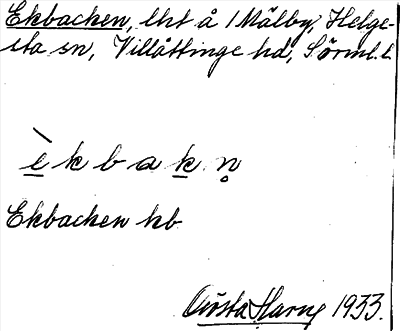 Ekbacken, lht å 1 Mälby, Helge-
sta sn, Villåttinge hd, Sörml. l.
è k b a k n̥
Ekbacken kb
Gösta Harng 1933.